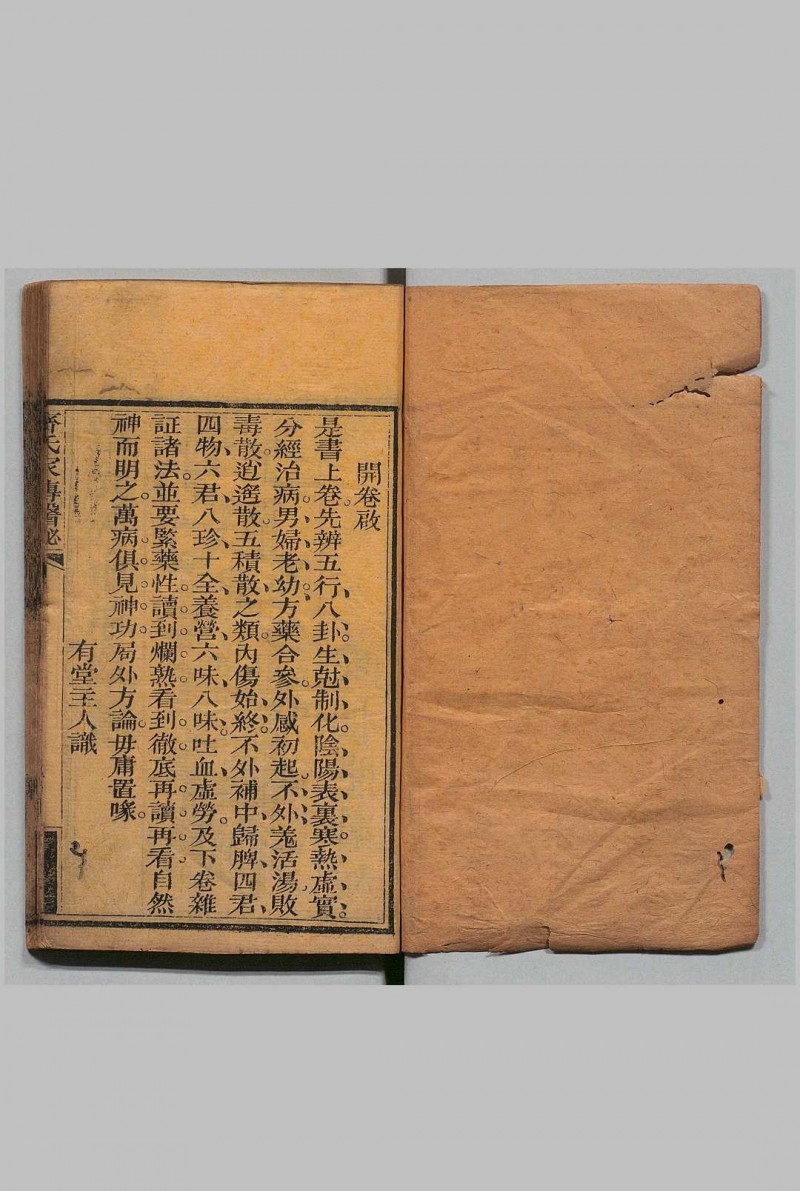 開卷啟
是書上卷先辨五行、八卦。生、尅、制、化。陰、陽、表、裏、寒、熱、虛、實。
分經治病。男、婦、老、幼。方藥合參。外感初起。不外羗活湯、敗
毒散。逍遙散。五積散、之類。內傷始終。不外補中、歸脾、四君、
四物、六君、八珍、十全、養營、六味、八味。吐血、虛勞。及下卷雜
証諸法。並要緊藥性。讀到爛熟。看到徹底。再讀再看。自然
神而明之。萬病俱見神功。局外方論。毋庸置喙。
有堂主人識
齊氏家傳醫秘